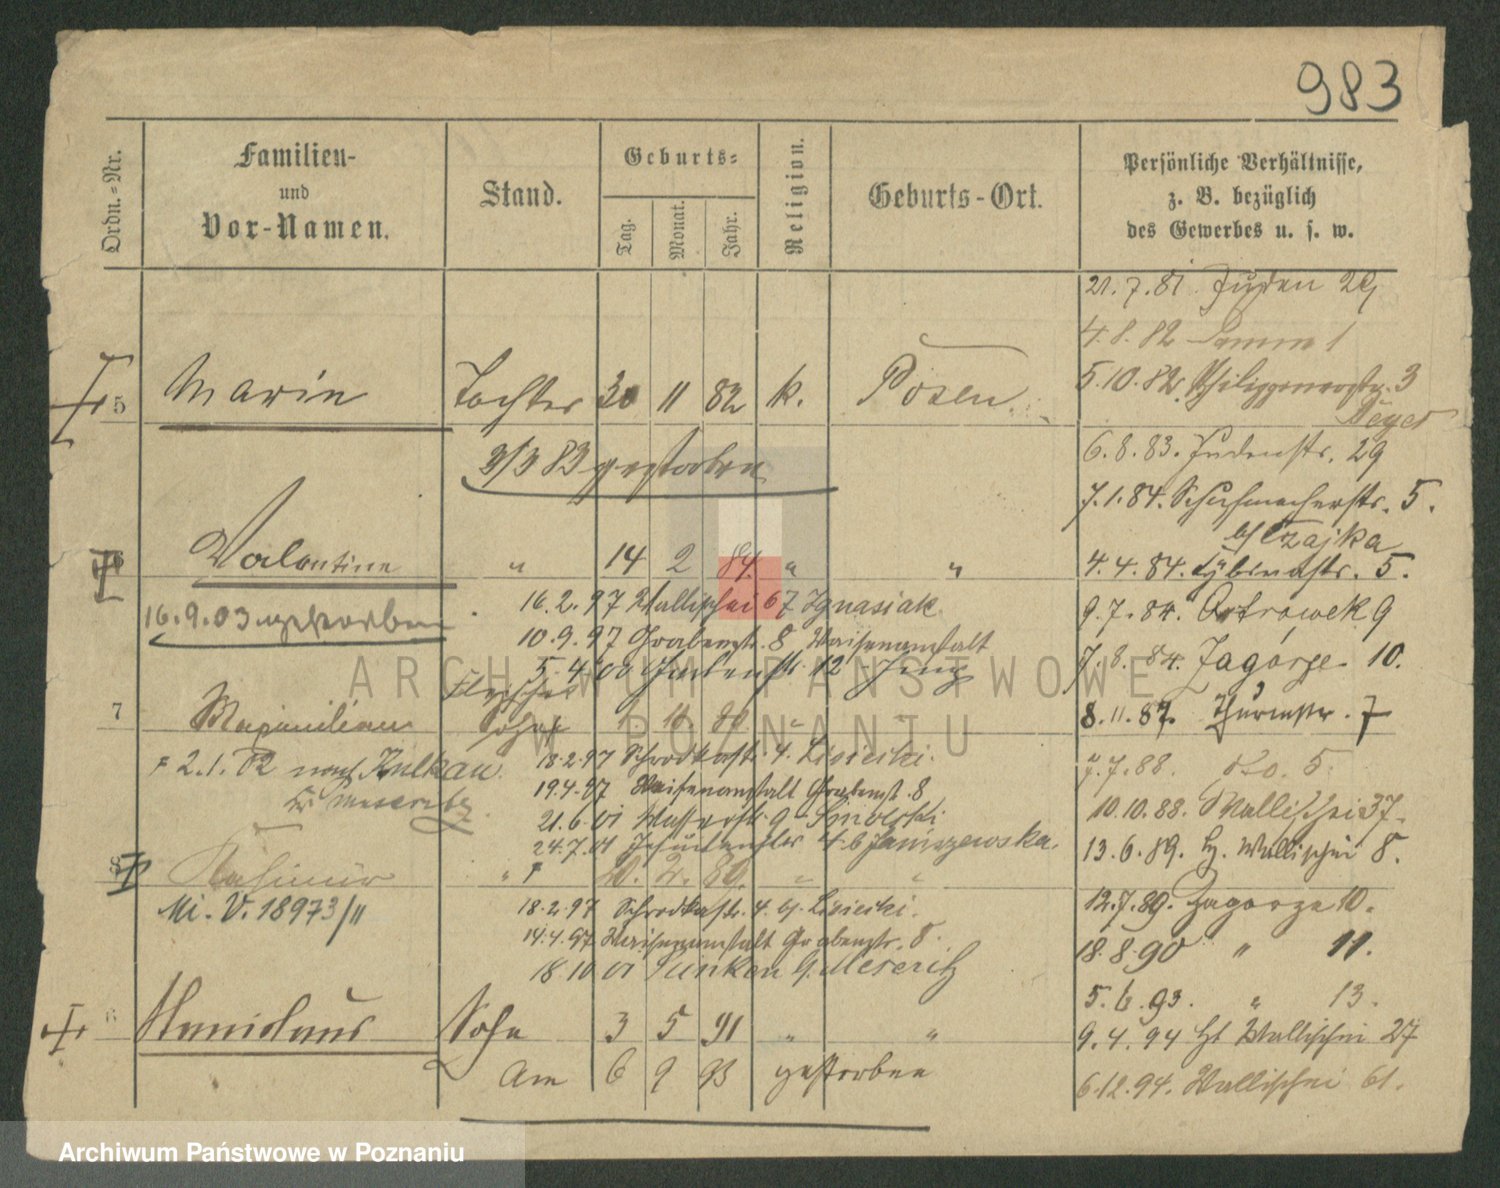 983
Ordn.-Nr.
Familien-
und
Vor-Namen.
Stand.
Geburts-
Tag.
Monat.
Jahr.
Religion.
Geburts-Ort.
Persönliche Verhältnisse,
z. B. bezüglich
des Gewerbes u. s. w.
21.7.81 Juden 29
4.8.82 1
5 Marie Tochter 30 11 82 k. Posen
5.10.82 3
Meyer
3/3 83 gestorben
6.8.83. Judenstr. 29
7.1.84. Schuhmacherstr. 5.
b/ Czajka
6 Valentine " 14 2 84. " "
4.4.84. Cybinastr. 5.
16.9.03 gestorben
16.2.97 Wallischei 67 Ignasiak
9.7.84. Ostrowek 9
10.9.97 Grabenstr. 8 Waisenanstalt
5.4.00 Grabenstr. 12
7.8.84. Zagorze 10.
7 Maximilian Sohn
8.11.87. Thurmstr. 7
2.1.02 nach
18.2.97 Schrodkastr. 4. Lisiecki.
7.7.88. do. 5.
19.4.97 Waisenanstalt Grabenstr. 8
21.6.01 Wasserstr. 9
10.10.88. Wallischei 37.
24.7.01 4 b Janiszewska.
13.6.89. Wallischei 8.
8 Kasimir "
Mi. V. 18973/11
18.2.97 Schrodkastr. 4. b/ Lisiecki.
12.7.89. Zagorze 10.
14.4.97 Waisenanstalt Grabenstr. 8
18.8.90 " 11.
18.10.01 Meseritz
5.6.93. " 13.
Stanislaus Sohn 3 5 91 " "
9.4.94 Wallischei 27
Am 6 9 93 gestorben
6.12.94. Wallischei 61.
ARCHIWUM PAŃSTWOWE
W POZNANIU
Archiwum Państwowe w Poznaniu